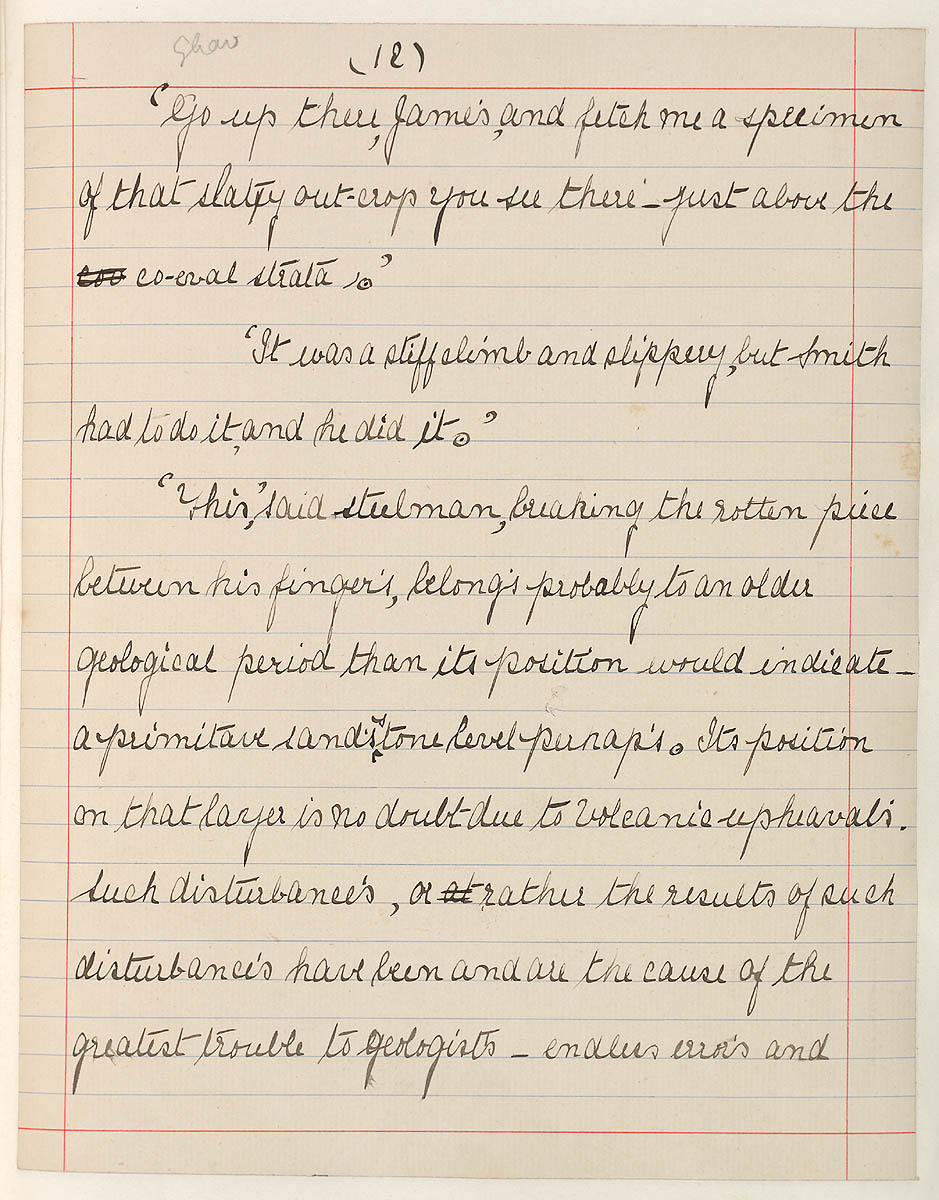 (12)
'Go up there, James, and fetch me a specimen
of that slaty out-crop you see there – just above the
coo co-eval strata.'
'It was a stiff climb and slippery, but Smith
had to do it, and he did it.'
'This,' said Steelman, breaking the rotten piece
between his fingers, belongs probably to an older
geological period than its position would indicate –
a primitave sandstone level perhaps. Its position
on that layer is no doubt due to volcanic upheavals.
Such disturbances, or at rather the results of such
disturbances have been and are the cause of the
greatest trouble to geologists – endless errors and